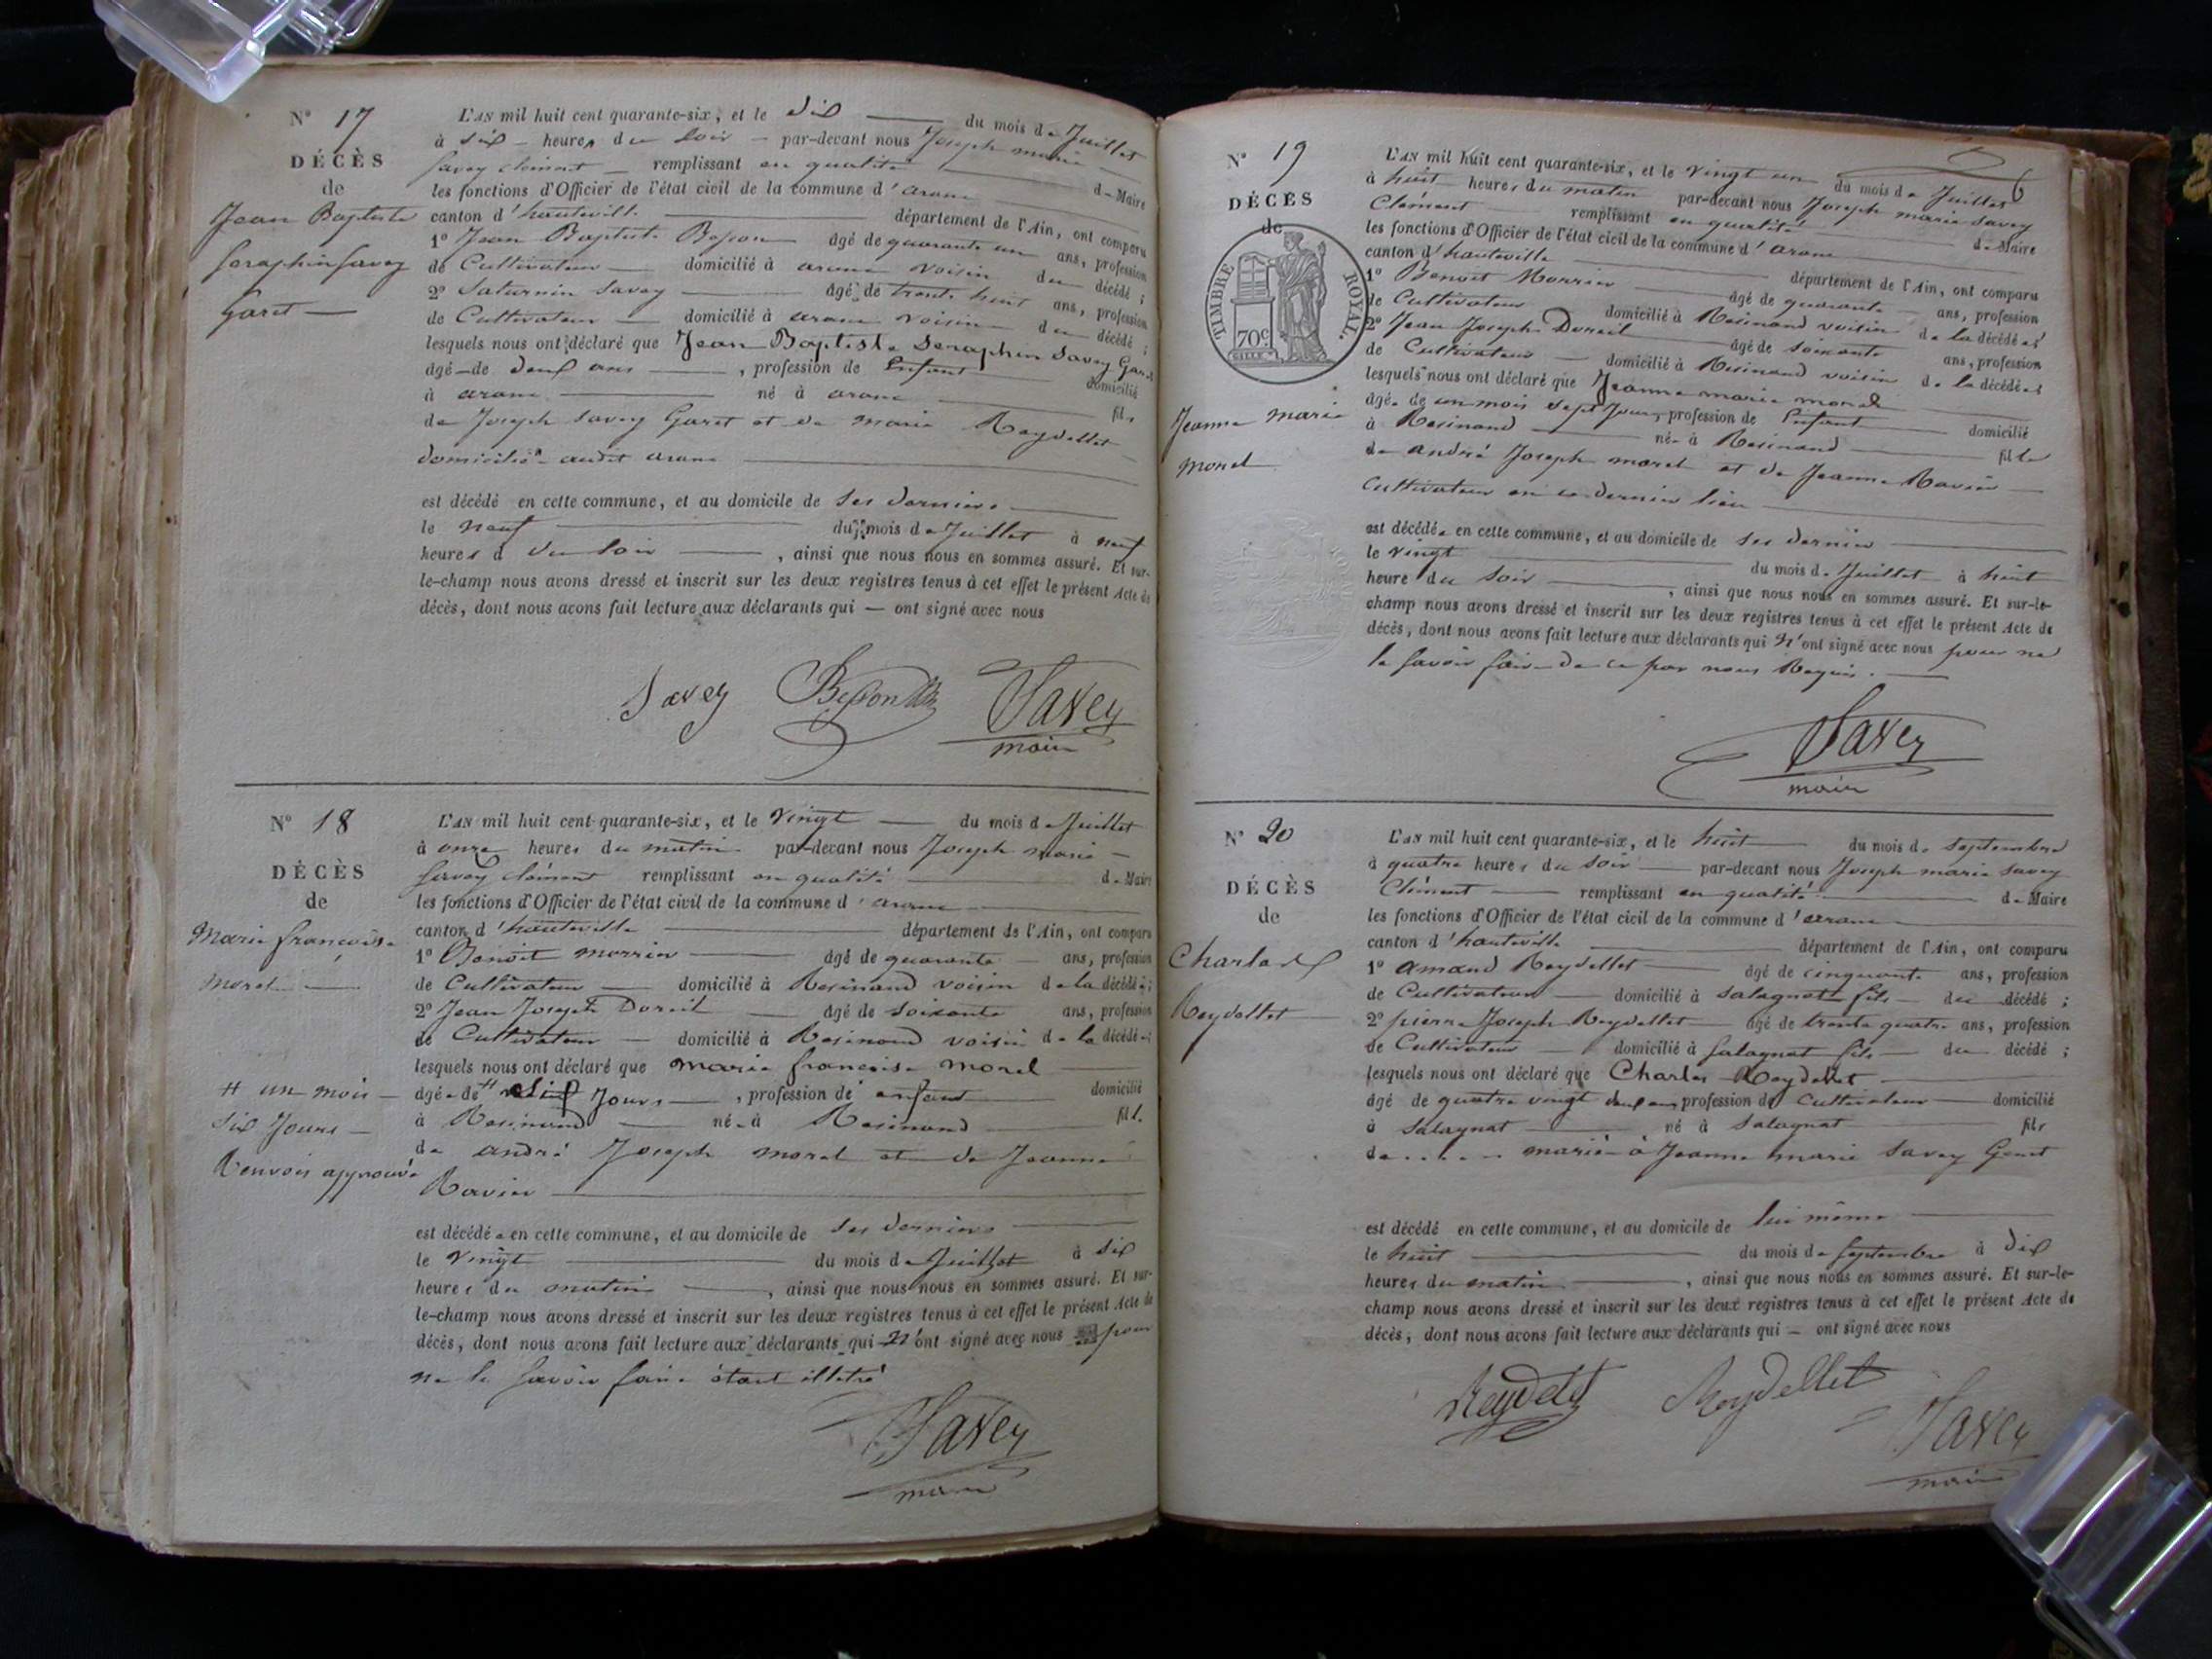 N° 17
DÉCÈS
de
Jean Baptiste
Seraphin Savey
Garet
L'AN mil huit cent quarante-six, et le dix du mois de Juillet
à six heures du soir par-devant nous Joseph marie
Savey clément remplissant en qualité de Maire
les fonctions d'Officier de l'état civil de la commune d'arane
canton d'hauteville département de l'Ain, ont comparu
1° Jean Baptiste Besson âgé de quarante un ans, profession
de Cultivateur domicilié à arane voisin du décédé ;
2° Saturnin Savey âgé de trente huit ans, profession
de Cultivateur domicilié à arane voisin du décédé ;
lesquels nous ont déclaré que Jean Baptiste Seraphin Savey Garet
âgé de deux ans, profession de Enfant domicilié
à arane né à arane fils
de Joseph Savey Garet et de marie Reydellet
domiciliés audit arane
est décédé en cette commune, et au domicile de ses derniers
le neuf du mois de Juillet à neuf
heures du soir, ainsi que nous nous en sommes assuré. Et sur-
le-champ nous avons dressé et inscrit sur les deux registres tenus à cet effet le présent Acte de
décès, dont nous avons fait lecture aux déclarants qui — ont signé avec nous
Savey Besson Savey
maire
N° 18
DÉCÈS
de
Marie françoise
Morel
# un mois
six Jours
Renvois approuvé
L'AN mil huit cent quarante-six, et le vingt du mois de Juillet
à onze heures du matin par-devant nous Joseph marie
Savey clément remplissant en qualité de Maire
les fonctions d'Officier de l'état civil de la commune d'arane
canton d'hauteville département de l'Ain, ont comparu
1° Benoit morrier âgé de quarante ans, profession
de Cultivateur domicilié à Resinand voisin de la décédée ;
2° Jean Joseph Doreil âgé de soixante ans, profession
de Cultivateur domicilié à Resinand voisin de la décédée ;
lesquels nous ont déclaré que marie françoise morel
âgée de # Jours, profession de enfant domicilié
à Resinand née à Resinand fil
de andré Joseph morel et de Jeanne
Ravier
est décédée en cette commune, et au domicile de ses derniers
le vingt du mois de Juillet à six
heures du matin, ainsi que nous nous en sommes assuré. Et sur-
le-champ nous avons dressé et inscrit sur les deux registres tenus à cet effet le présent Acte de
décès, dont nous avons fait lecture aux déclarants qui n'ont signé avec nous pour
ne le savoir faire étant illetré
Savey
maire
N° 19
DÉCÈS
de
TIMBRE ROYAL.
70c
Jeanne marie
morel
L'AN mil huit cent quarante-six, et le vingt un du mois de Juillet
à huit heures du matin par-devant nous Joseph marie Savey
Clément remplissant en qualité de Maire
les fonctions d'Officier de l'état civil de la commune d'arane
canton d'hauteville département de l'Ain, ont comparu
1° Benoit Morrier âgé de quarante ans, profession
de Cultivateur domicilié à Resinand voisin de la décédée
2° Jean Joseph Doreil âgé de soixante ans, profession
de Cultivateur domicilié à Resinand voisin de la décédée
lesquels nous ont déclaré que Jeanne marie morel
âgée de un mois sept Jours, profession de Enfant domicilié
à Resinand née à Resinand fille
de andré Joseph morel et de Jeanne Ravier
Cultivateur en ce dernier lieu
est décédée en cette commune, et au domicile de ses dernier
le vingt du mois de Juillet à huit
heure du soir, ainsi que nous nous en sommes assuré. Et sur-le-
champ nous avons dressé et inscrit sur les deux registres tenus à cet effet le présent Acte de
décès, dont nous avons fait lecture aux déclarants qui n'ont signé avec nous pour ne
le savoir faire de ce par nous Requis.
Savey
maire
N° 20
DÉCÈS
de
Charles
Reydellet
L'AN mil huit cent quarante-six, et le huit du mois de septembre
à quatre heures du soir par-devant nous Joseph marie Savey
Clément remplissant en qualité de Maire
les fonctions d'Officier de l'état civil de la commune d'arane
canton d'hauteville département de l'Ain, ont comparu
1° amand Reydellet âgé de cinquante ans, profession
de Cultivateur domicilié à Salagnat fils du décédé ;
2° pierre Joseph Reydellet âgé de trente quatre ans, profession
de Cultivateur domicilié à Salagnat fils du décédé ;
lesquels nous ont déclaré que Charles Reydellet
âgé de quatre vingt deux ans profession de Cultivateur domicilié
à Salagnat né à Salagnat fils
de . . . . . marié à Jeanne marie Savey
est décédé en cette commune, et au domicile de lui même
le huit du mois de septembre à dix
heures du matin, ainsi que nous nous en sommes assuré. Et sur-le-
champ nous avons dressé et inscrit sur les deux registres tenus à cet effet le présent Acte de
décès, dont nous avons fait lecture aux déclarants qui — ont signé avec nous
Reydelet Reydellet Savey
maire